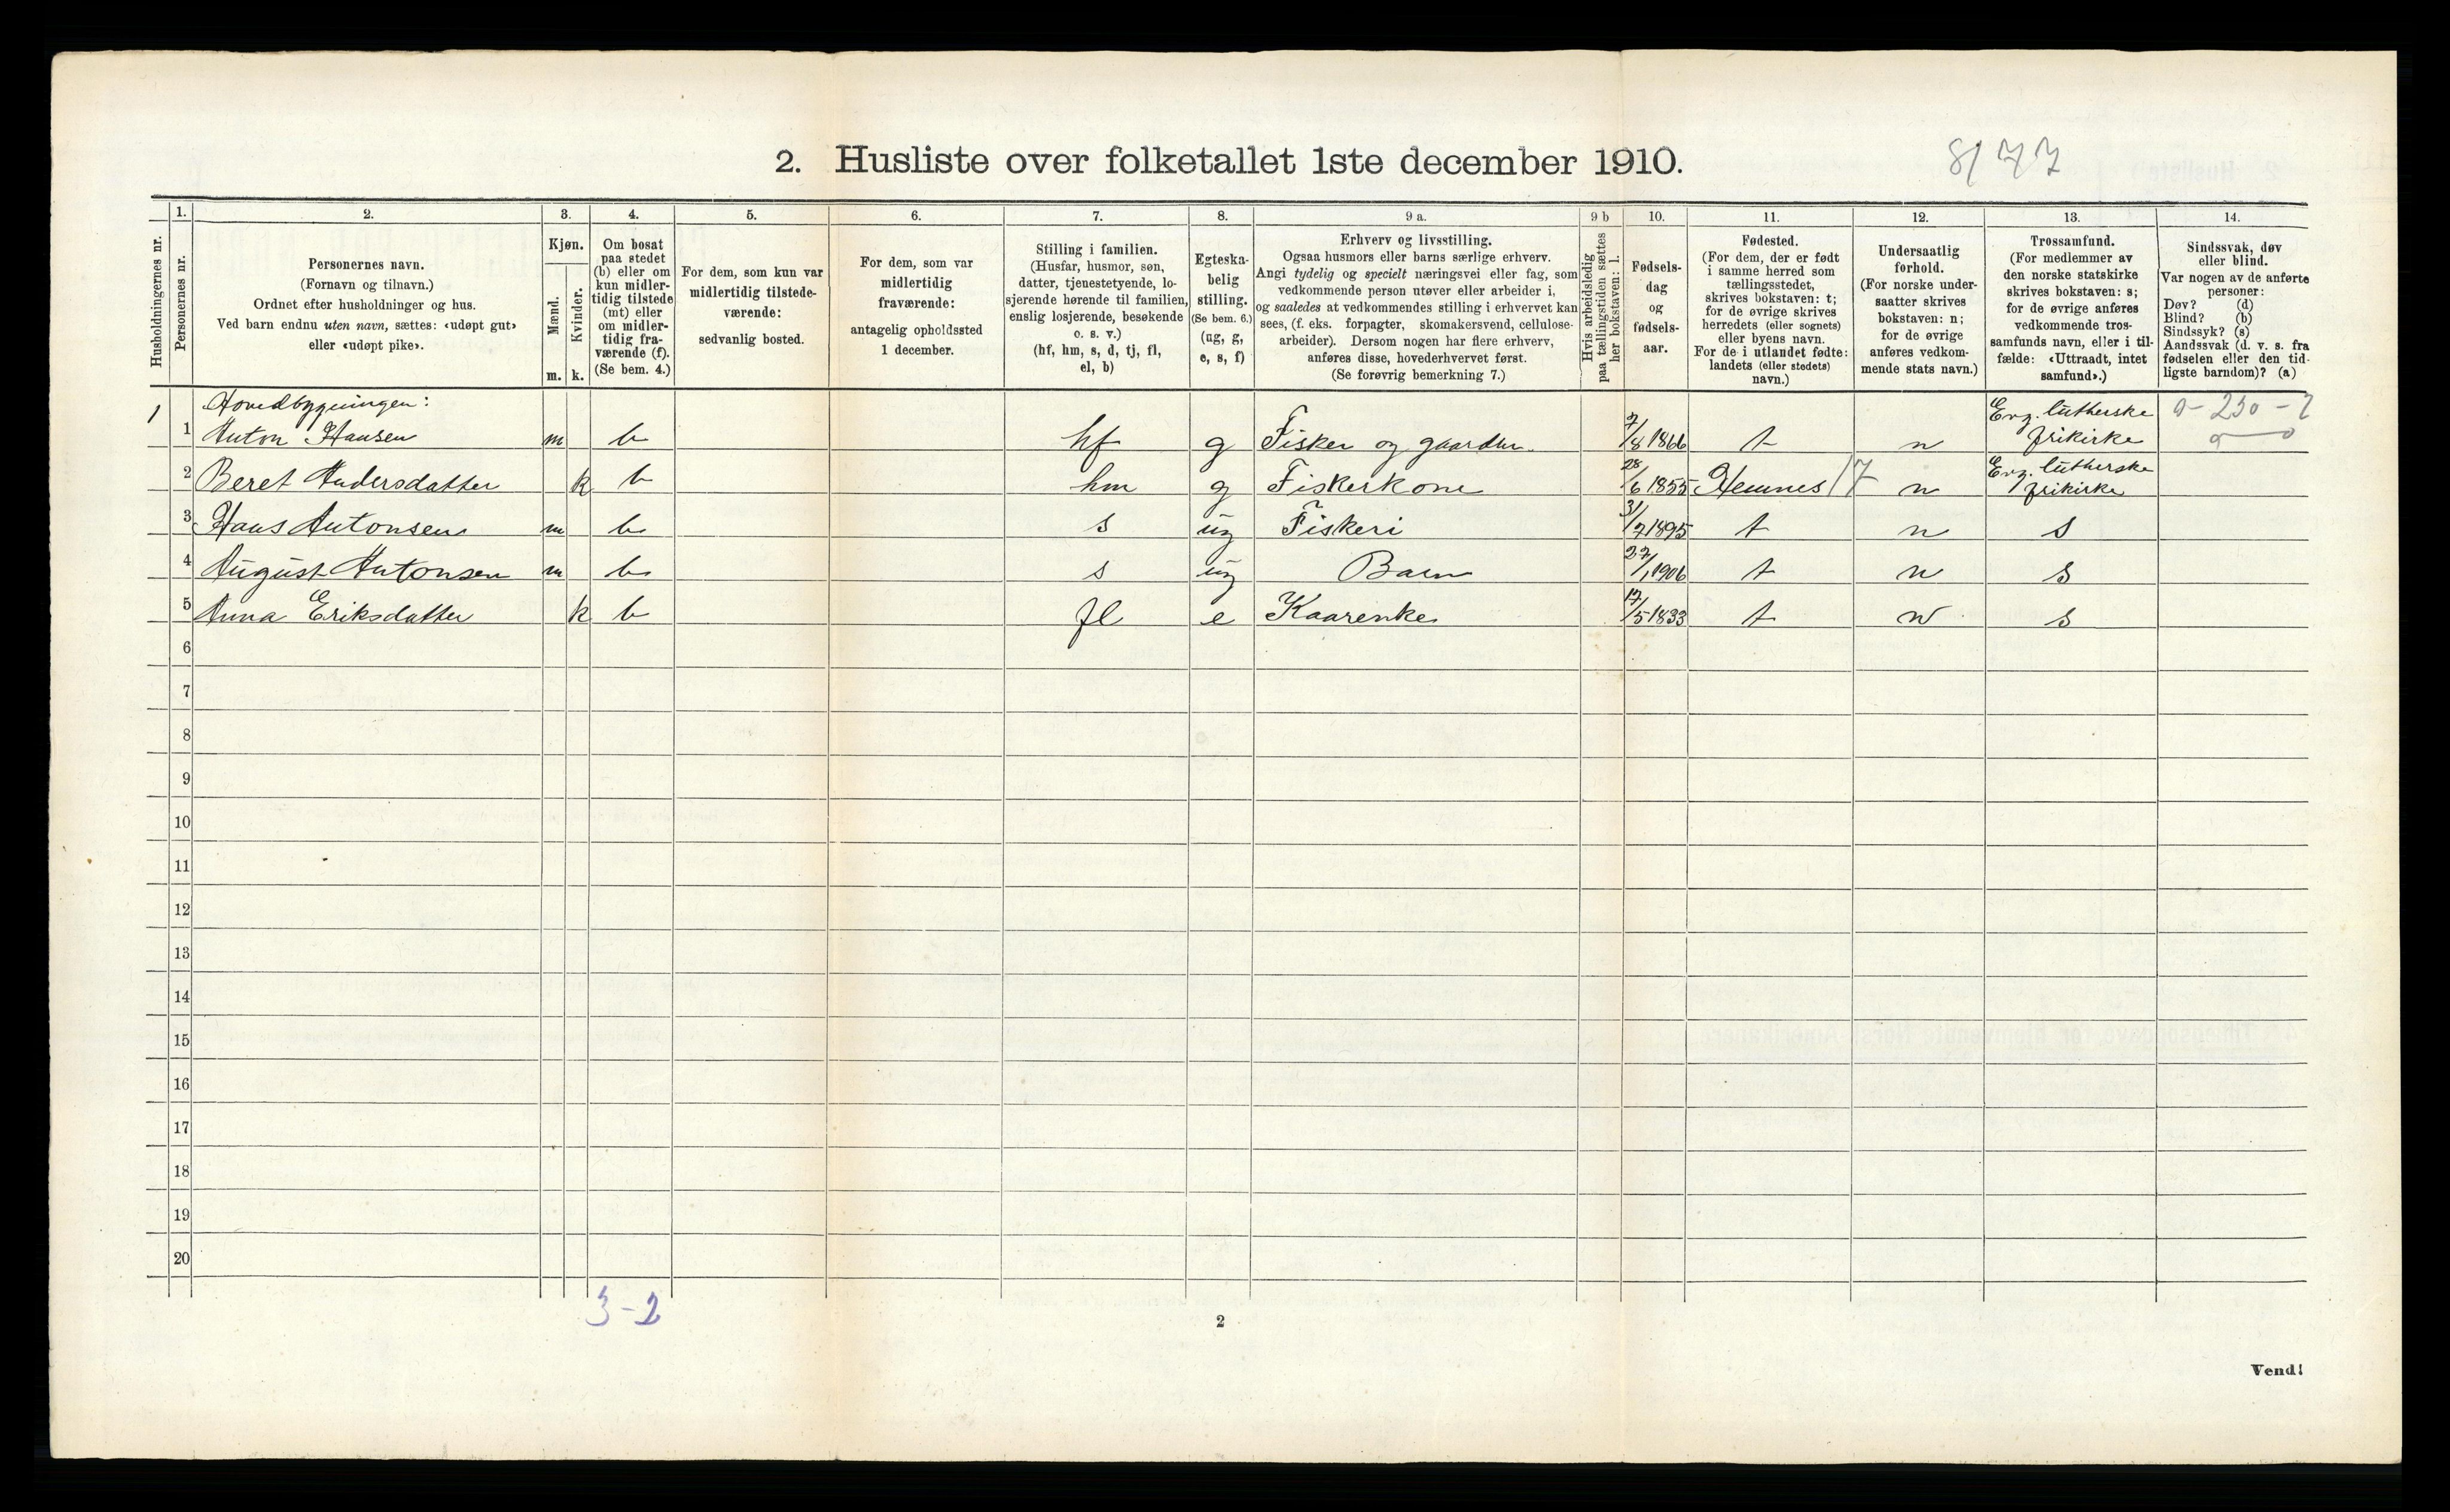 2. Husliste over folketallet 1ste december 1910.
8/77
Husholdningernes nr.
1.
Personernes nr.
2.
Personernes navn.
(Fornavn og tilnavn.)
Ordnet efter husholdninger og hus.
Ved barn endnu uten navn, sættes: «udøpt gut»
eller «udøpt pike».
3.
Kjøn.
Mænd.
Kvinder.
m. k.
4.
Om bosat
paa stedet
(b) eller om
kun midler-
tidig tilstede
(mt) eller
om midler-
tidig fra-
værende (f).
(Se bem. 4.)
5.
For dem, som kun var
midlertidig tilstede-
værende:
sedvanlig bosted.
6.
For dem, som var
midlertidig
fraværende:
antagelig opholdssted
1 december.
7.
Stilling i familien.
(Husfar, husmor, søn,
datter, tjenestetyende, lo-
sjerende hørende til familien,
enslig losjerende, besøkende
o. s. v.)
(hf, hm, s, d, tj, fl,
el, b)
8.
Egteska-
belig
stilling.
(Se bem. 6.)
(ug, g,
e, s, f)
9 a.
Erhverv og livsstilling.
Ogsaa husmors eller barns særlige erhverv.
Angi tydelig og specielt næringsvei eller fag, som
vedkommende person utøver eller arbeider i,
og saaledes at vedkommendes stilling i erhvervet kan
sees, (f. eks. forpagter, skomakersvend, cellulose-
arbeider). Dersom nogen har flere erhverv,
anføres disse, hovederhvervet først.
(Se forøvrig bemerkning 7.)
9 b
Hvis arbeidsledig
paa tællingstiden sættes
her bokstaven: l.
10.
Fødsels-
dag
og
fødsels-
aar.
11.
Fødested.
(For dem, der er født
i samme herred som
tællingsstedet,
skrives bokstaven: t;
for de øvrige skrives
herredets (eller sognets)
eller byens navn.
For de i utlandet fødte:
landets (eller stedets)
navn.)
12.
Undersaatlig
forhold.
(For norske under-
saatter skrives
bokstaven: n;
for de øvrige
anføres vedkom-
mende stats navn.)
13.
Trossamfund.
(For medlemmer av
den norske statskirke
skrives bokstaven: s;
for de øvrige anføres
vedkommende tros-
samfunds navn, eller i til-
fælde: «Uttraadt, intet
samfund».)
14.
Sindssvak, døv
eller blind.
Var nogen av de anførte
personer:
Døv? (d)
Blind? (b)
Sindssyk? (s)
Aandssvak (d. v. s. fra
fødselen eller den tid-
ligste barndom)? (a)
Hovedbygningen:
1 1 Anton Hansen m b hf g Fisker og 7/8 1866 t n Evg. lutherske frikirke
2 Beret Andersdatter k b hm g Fiskerkone 28/6 1855 Hemnes 17 n Evg. lutherske frikirke
3 Hans Antonsen m b s ug Fiskeri 31/7 1895 t n s
4 August Antonsen m b s ug Barn 27/1 1906 t n s
5 Anna Eriksdatter k b fl e Kaarenke 17/5 1833 t n s
6
7
8
9
10
11
12
13
14
15
16
17
18
19
20
3-2
2
Vend!